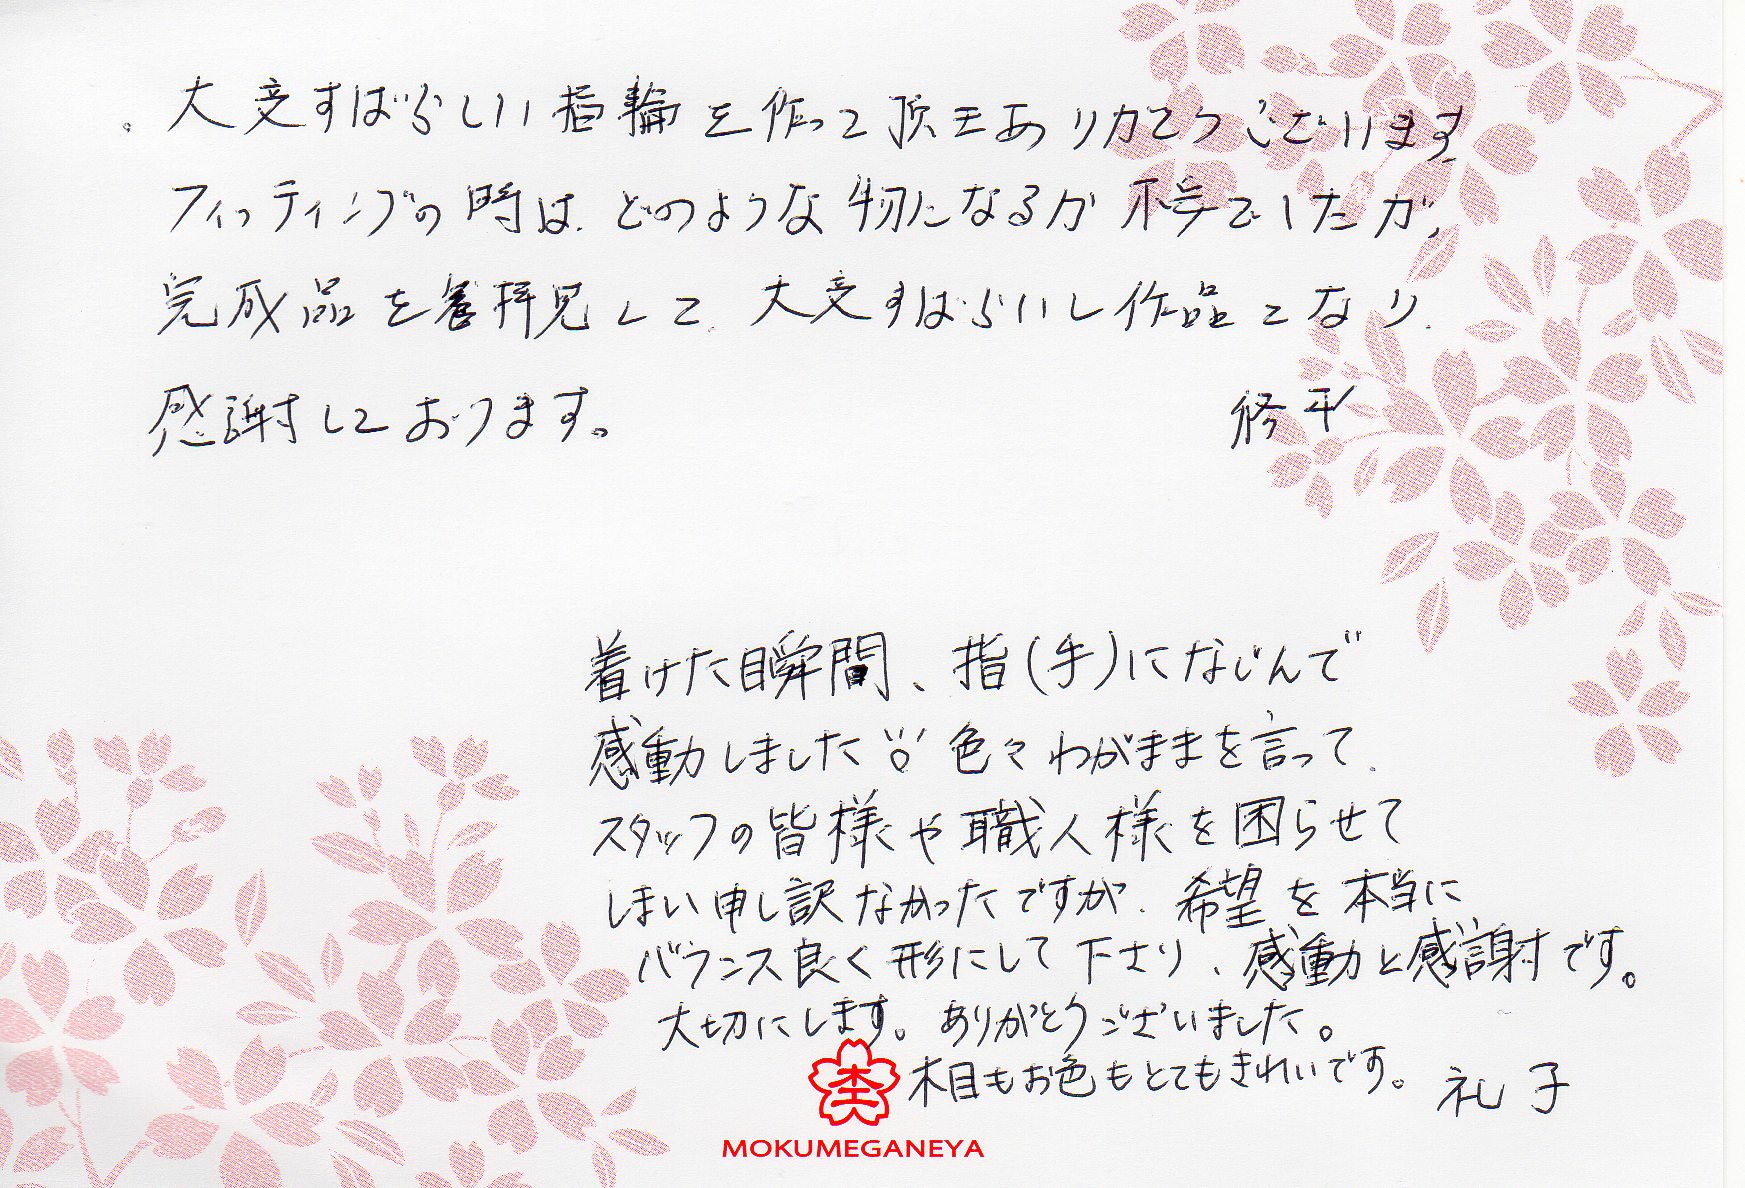 大変すばらしい指輪を作って頂きありがとうございます
フィッティングの時は、どのような物になるか不安でしたが、
完成品を拝見して、大変すばらいし作品となり、
感謝しております。
修平
着けた瞬間、指(手)になじんで
感動しました 色々わがままを言って、
スタッフの皆様や職人様を困らせて
しまい申し訳なかったですが、希望を本当に
バランス良く形にして下さり、感動と感謝です。
大切にします。ありがとうございました。
木目もお色もとてもきれいです。
礼子
MOKUMEGANEYA